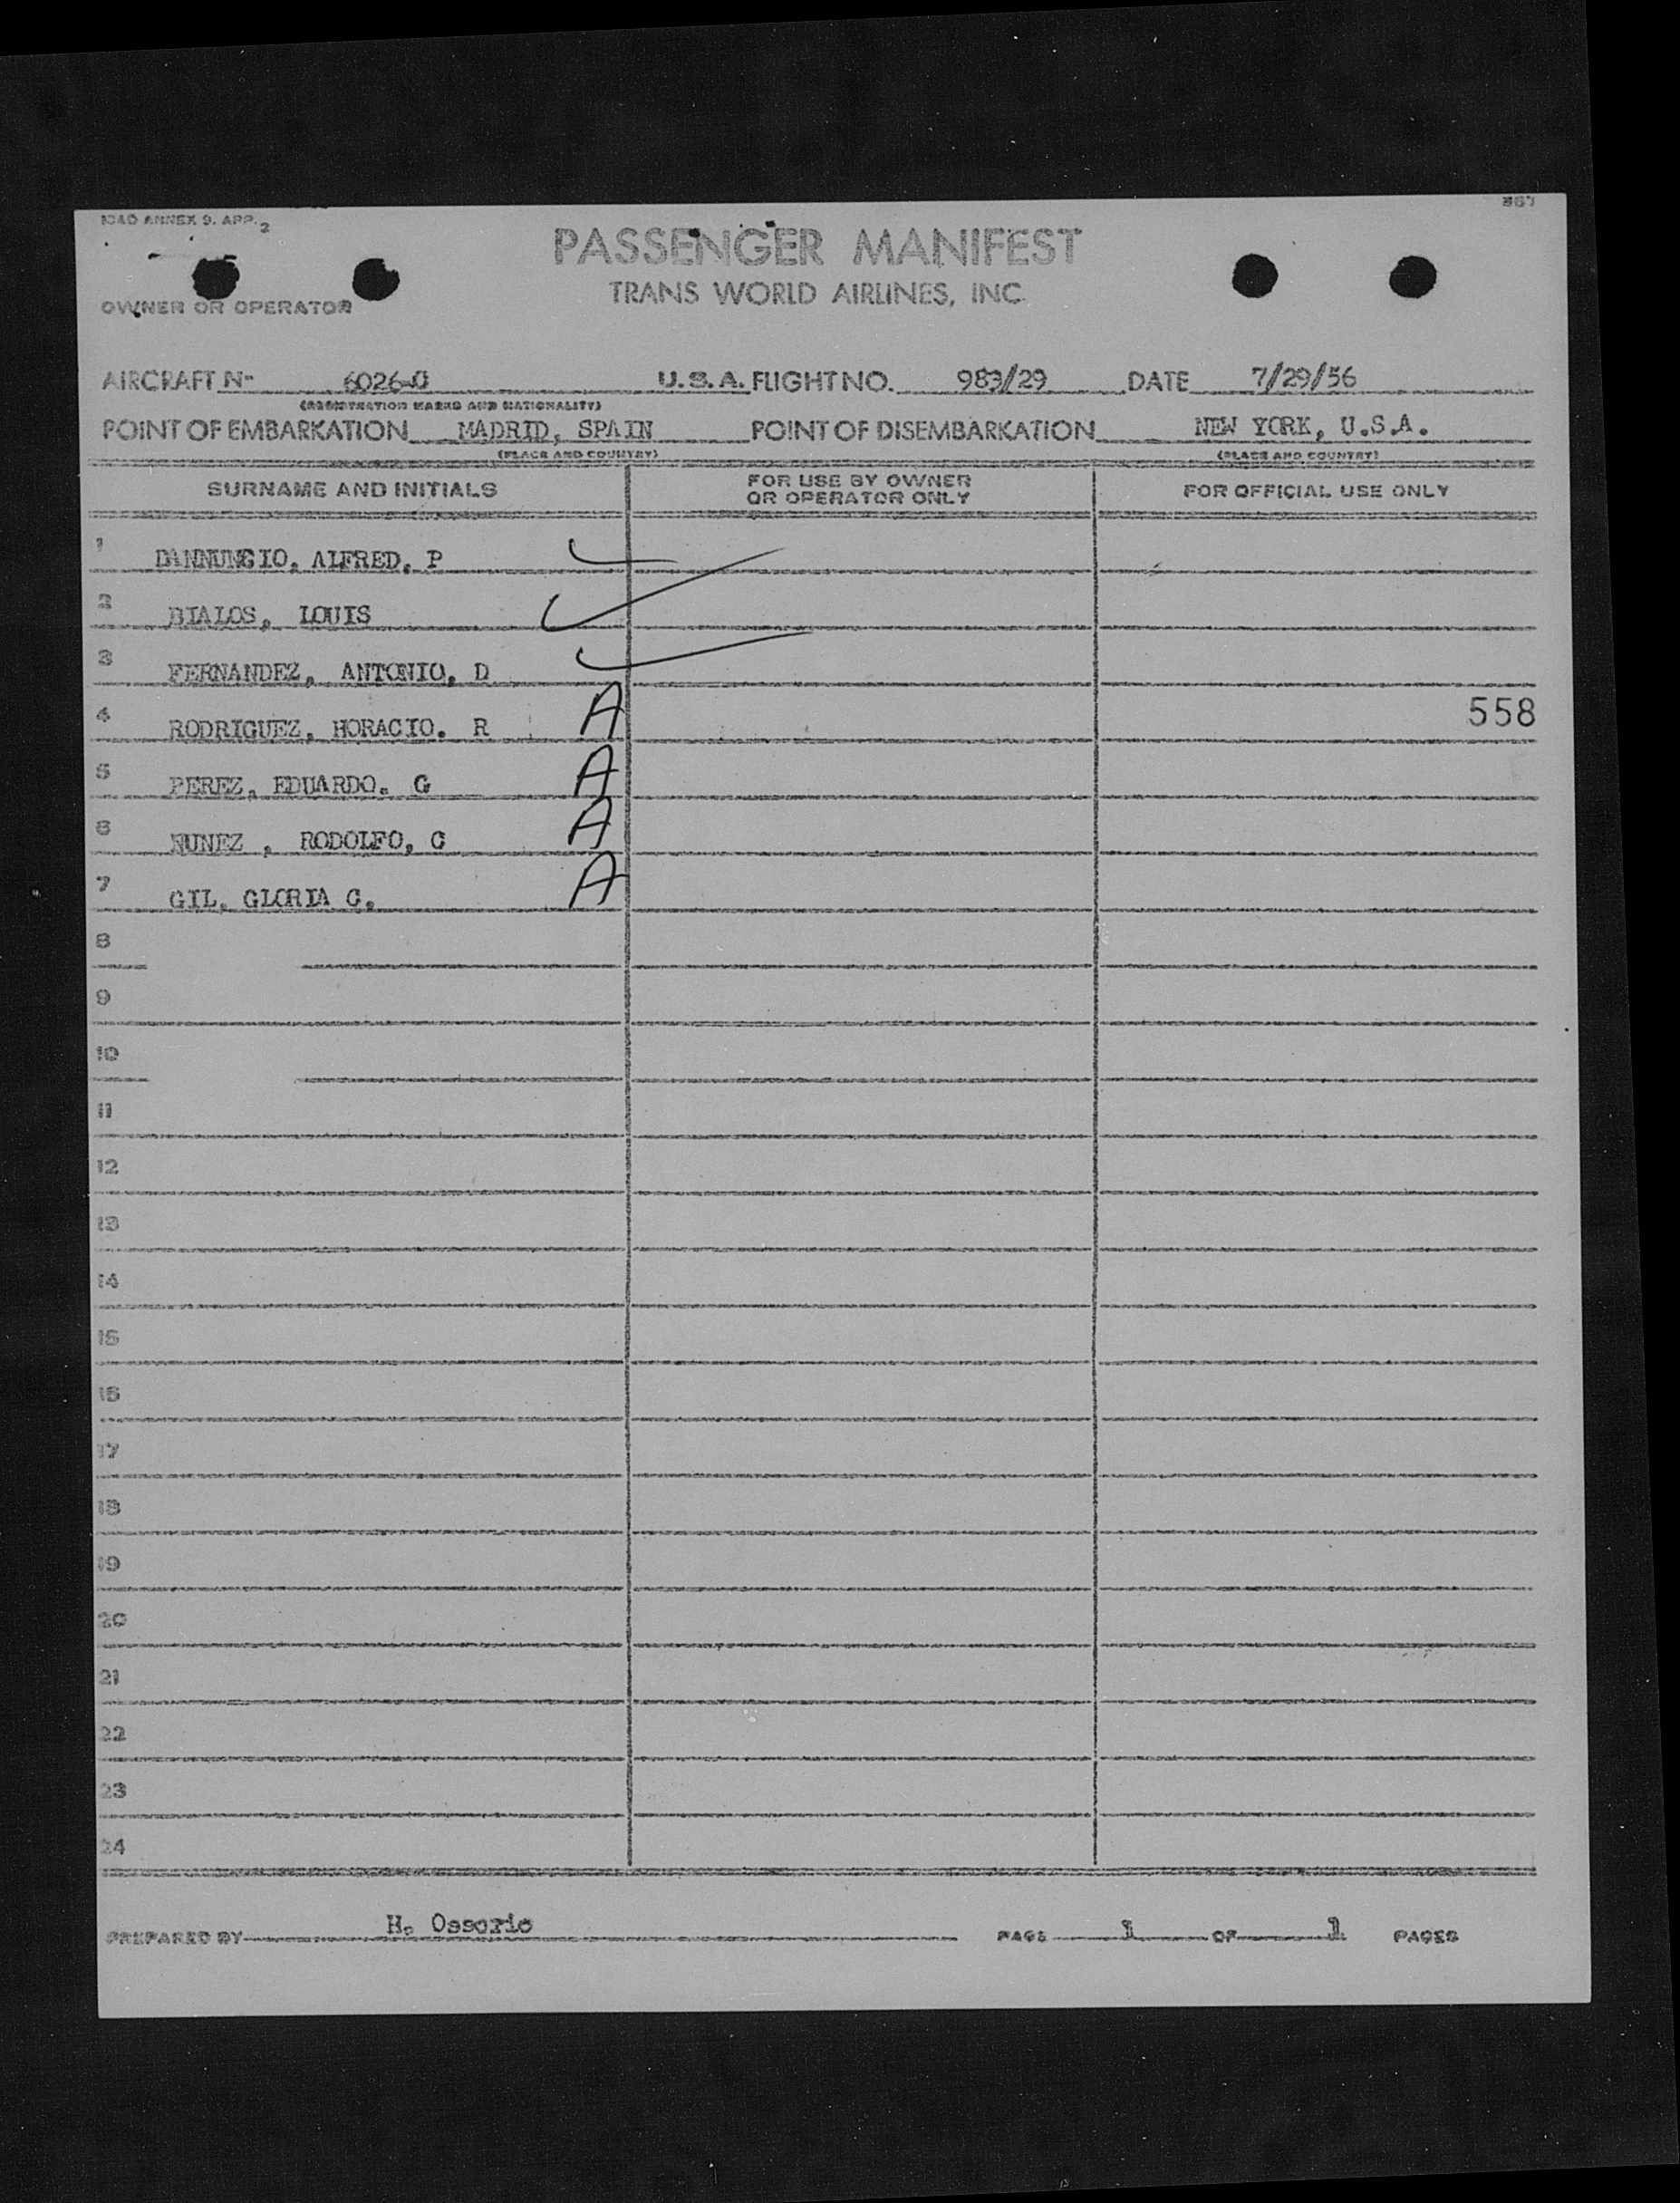 ICAO ANNEX 9. APP. 2
867
PASSENGER MANIFEST
OWNER OR OPERATOR TRANS WORLD AIRLINES, INC.
AIRCRAFT Nº 6026-C U.S.A. FLIGHT NO. 983/29 DATE 7/29/56
(REGISTRATION MARKS AND NATIONALITY)
POINT OF EMBARKATION MADRID, SPAIN POINT OF DISEMBARKATION NEW YORK, U.S.A.
(PLACE AND COUNTRY) (PLACE AND COUNTRY)
SURNAME AND INITIALS
FOR USE BY OWNER
OR OPERATOR ONLY
FOR OFFICIAL USE ONLY
1 DANNUNGIO, ALFRED. P
2 BIALOS, LOUIS
3 FERNANDEZ, ANTONIO, D
4 RODRIGUEZ, HORACIO. R A 558
5 PEREZ, EDUARDO. G A
6 NUNEZ , RODOLFO, C A
7 GIL, GLORIA C. A
8
9
10
11
12
13
14
15
16
17
18
19
20
21
22
23
24
PREPARED BY H. Ossorio PAGE 1 OF 1 PAGES